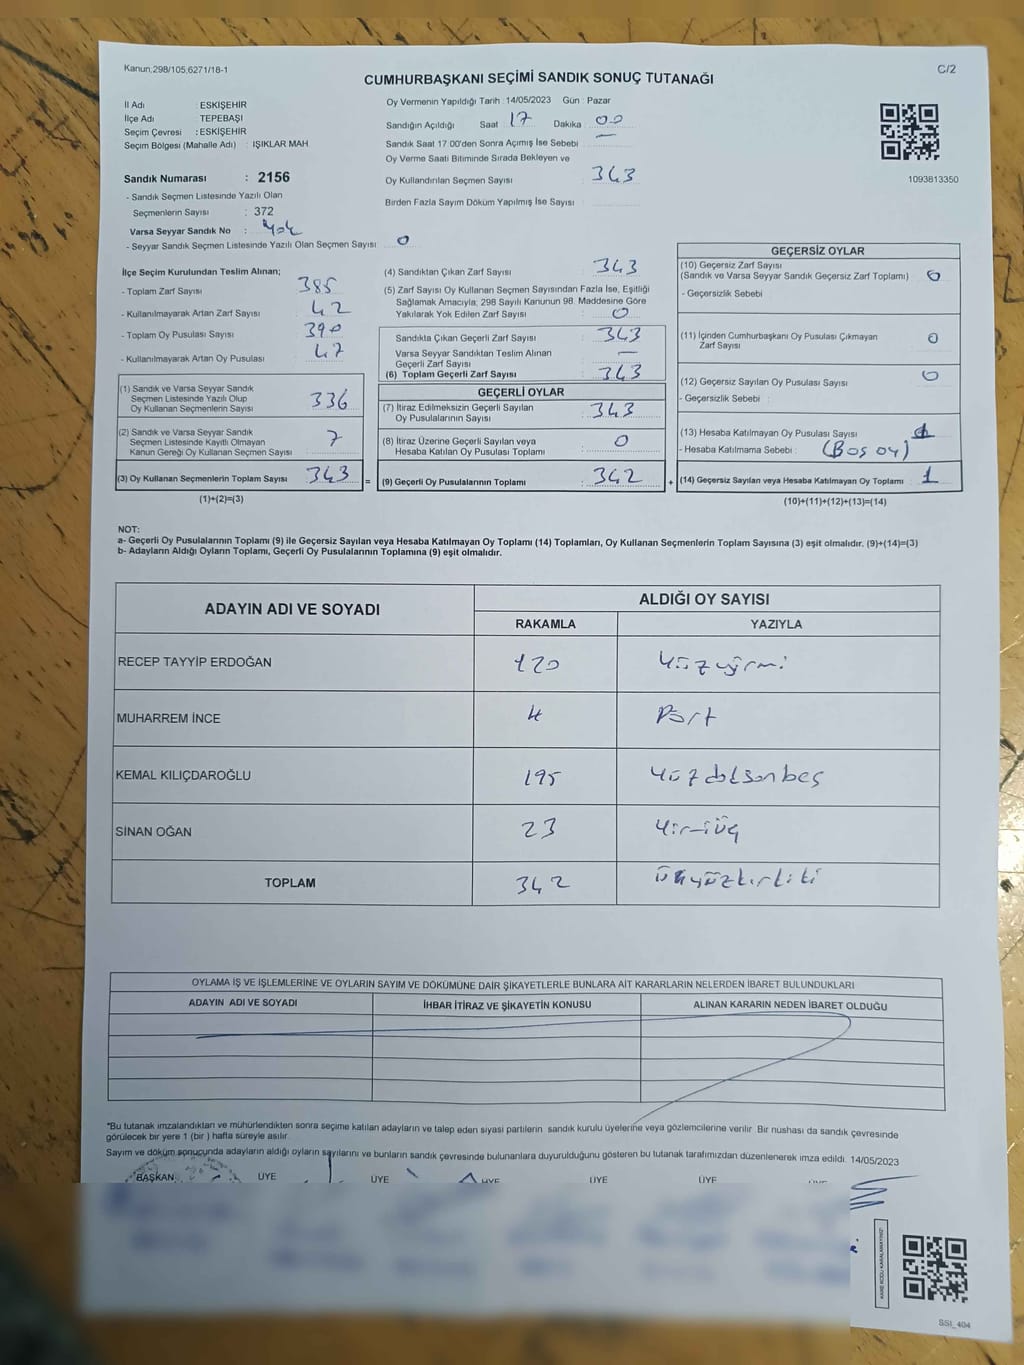 Kanun;298/105;6271/18-1
C/2
CUMHURBAŞKANI SEÇİMİ SANDIK SONUÇ TUTANAĞI
İl Adı : ESKİŞEHİR
İlçe Adı TEPEBAŞI
Seçim Çevresi : ESKİŞEHİR
Seçim Bölgesi (Mahalle Adı) : IŞIKLAR MAH
Sandık Numarası : 2156
- Sandık Seçmen Listesinde Yazılı Olan
Seçmenlerin Sayısı : 372
Varsa Seyyar Sandık No :
- Seyyar Sandık Seçmen Listesinde Yazılı Olan Seçmen Sayısı : 0
Oy Vermenin Yapıldığı Tarih : 14/05/2023 Gün : Pazar
Sandığın Açıldığı Saat 17 Dakika 00
Sandık Saat 17 00'den Sonra Açımış İse Sebebi —
Oy Verme Saati Bitiminde Sırada Bekleyen ve
Oy Kullandırılan Seçmen Sayısı 343
Birden Fazla Sayım Döküm Yapılmış İse Sayısı
1093813350
İlçe Seçim Kurulundan Teslim Alınan;
- Toplam Zarf Sayısı 385
- Kullanılmayarak Artan Zarf Sayısı 42
- Toplam Oy Pusulası Sayısı 390
- Kullanılmayarak Artan Oy Pusulası 47
(1) Sandık ve Varsa Seyyar Sandık
Seçmen Listesinde Yazılı Olup
Oy Kullanan Seçmenlerin Sayısı 336
(2) Sandık ve Varsa Seyyar Sandık
Seçmen Listesinde Kayıtlı Olmayan
Kanun Gereği Oy Kullanan Seçmen Sayısı 7
(3) Oy Kullanan Seçmenlerin Toplam Sayısı 343 =
(1)+(2)=(3)
(4) Sandıktan Çıkan Zarf Sayısı 343
(5) Zarf Sayısı Oy Kullanan Seçmen Sayısından Fazla İse, Eşitliği
Sağlamak Amacıyla; 298 Sayılı Kanunun 98. Maddesine Göre
Yakılarak Yok Edilen Zarf Sayısı : 0
Sandıkta Çıkan Geçerli Zarf Sayısı : 343
Varsa Seyyar Sandıktan Teslim Alınan
Geçerli Zarf Sayısı : —
(6) Toplam Geçerli Zarf Sayısı : 343
GEÇERLİ OYLAR
(7) İtiraz Edilmeksizin Geçerli Sayılan
Oy Pusulalarının Sayısı : 343
(8) İtiraz Üzerine Geçerli Sayılan veya
Hesaba Katılan Oy Pusulası Toplamı : 0
(9) Geçerli Oy Pusulalarının Toplamı : 342 +
GEÇERSİZ OYLAR
(10) Geçersiz Zarf Sayısı
(Sandık ve Varsa Seyyar Sandık Geçersiz Zarf Toplamı) : 0
- Geçersizlik Sebebi
(11) İçinden Cumhurbaşkanı Oy Pusulası Çıkmayan
Zarf Sayısı 0
(12) Geçersiz Sayılan Oy Pusulası Sayısı 0
- Geçersizlik Sebebi :
(13) Hesaba Katılmayan Oy Pusulası Sayısı
- Hesaba Katılmama Sebebi : (Boş oy)
(14) Geçersiz Sayılan veya Hesaba Katılmayan Oy Toplamı : 1
(10)+(11)+(12)+(13)=(14)
NOT:
a- Geçerli Oy Pusulalarının Toplamı (9) ile Geçersiz Sayılan veya Hesaba Katılmayan Oy Toplamı (14) Toplamları, Oy Kullanan Seçmenlerin Toplam Sayısına (3) eşit olmalıdır. (9)+(14)=(3)
b- Adayların Aldığı Oyların Toplamı, Geçerli Oy Pusulalarının Toplamına (9) eşit olmalıdır.
ADAYIN ADI VE SOYADI
ALDIĞI OY SAYISI
RAKAMLA YAZIYLA
RECEP TAYYİP ERDOĞAN 120 yüzyirmi
MUHARREM İNCE 4 Dört
KEMAL KILIÇDAROĞLU 195 yüzdoksanbeş
SİNAN OĞAN 23 yirmiüç
TOPLAM 342 üçyüzkırkiki
OYLAMA İŞ VE İŞLEMLERİNE VE OYLARIN SAYIM VE DÖKÜMÜNE DAİR ŞİKAYETLERLE BUNLARA AİT KARARLARIN NELERDEN İBARET BULUNDUKLARI
ADAYIN ADI VE SOYADI İHBAR İTİRAZ VE ŞİKAYETİN KONUSU ALINAN KARARIN NEDEN İBARET OLDUĞU
*Bu tutanak imzalandıktan ve mühürlendikten sonra seçime katılan adayların ve talep eden siyasi partilerin sandık kurulu üyelerine veya gözlemcilerine verilir. Bir nushası da sandık çevresinde
görülecek bir yere 1 (bir ) hafta süreyle asılır.
Sayım ve döküm sonucunda adayların aldığı oyların sayılarını ve bunların sandık çevresinde bulunanlara duyurulduğunu gösteren bu tutanak tarafımızdan düzenlenerek imza edildi. 14/05/2023
BAŞKAN ÜYE ÜYE ÜYE ÜYE ÜYE
KARE KODU KARALAMAYINIZ!
SSI_404